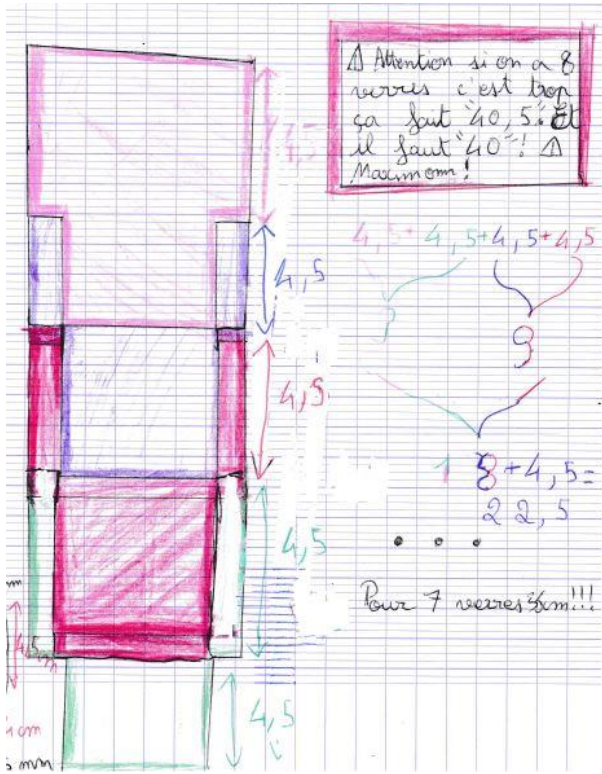 ⚠ Attention si on a 8
verres c'est trop
ça fait "40,5". Et
il faut "40"! ⚠
Maximom!
4,5
4,5+4,5+4,5+4,5
4,5
9
9
4,5
18+4,5=
22,5
4,5
. . .
Pour 7 verres
cm!!!
4,5
cm
mm